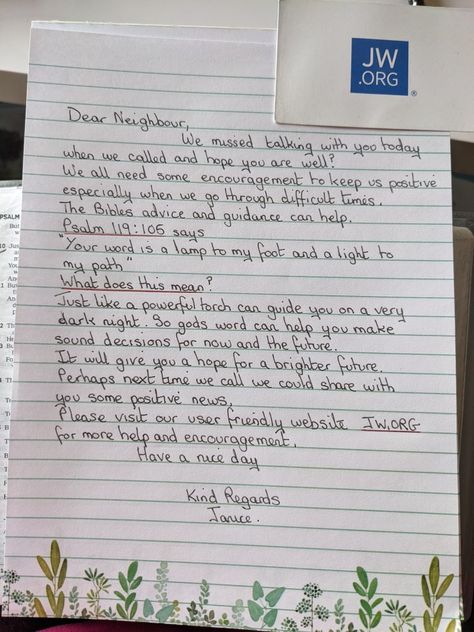 JW
.ORG
®
Dear Neighbour,
We missed talking with you today
when we called and hope you are well?
We all need some encouragement to keep us positive
especially when we go through difficult times.
The Bibles advice and guidance can help.
Psalm 119:105 says
"Your word is a lamp to my foot and a light to
my path"
What does this mean?
Just like a powerful torch can guide you on a very
dark night. So gods word can help you make
sound decisions for now and the future.
It will give you a hope for a brighter future.
Perhaps next time we call we could share with
you some positive news.
Please visit our user friendly website JW.ORG
for more help and encouragement.
Have a nice day
Kind Regards
Janice.
PSALM